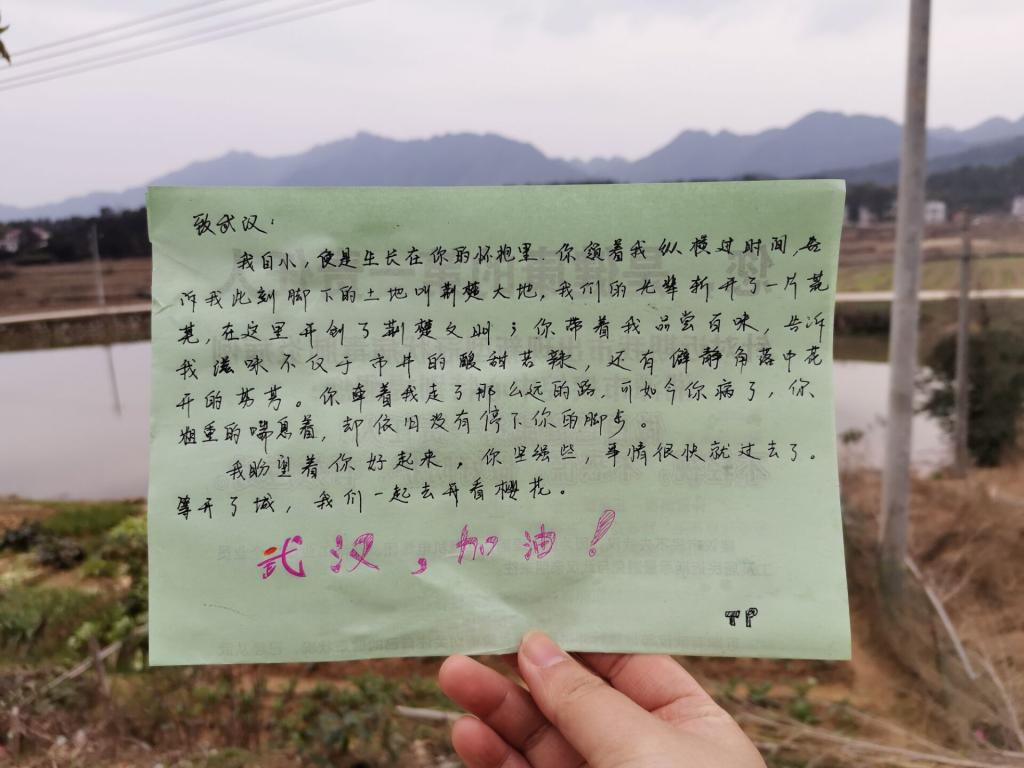 致武汉：
我自小，便是生长在你的怀抱里．你领着我纵横过时间，告
诉我此刻脚下的土地叫荆楚大地，我们的先辈斩开了一片荒
芜，在这里开创了荆楚文明；你带着我品尝百味，告诉
我滋味不仅于市井的酸甜苦辣，还有僻静角落中花
开的芬芳。你牵着我走了那么远的路．可如今你病了，你
粗重的喘息着，却依旧没有停下你的脚步。
我盼望着你好起来，你坚强些，事情很快就过去了。
等开了城，我们一起去再看樱花。
武汉，加油！
TP